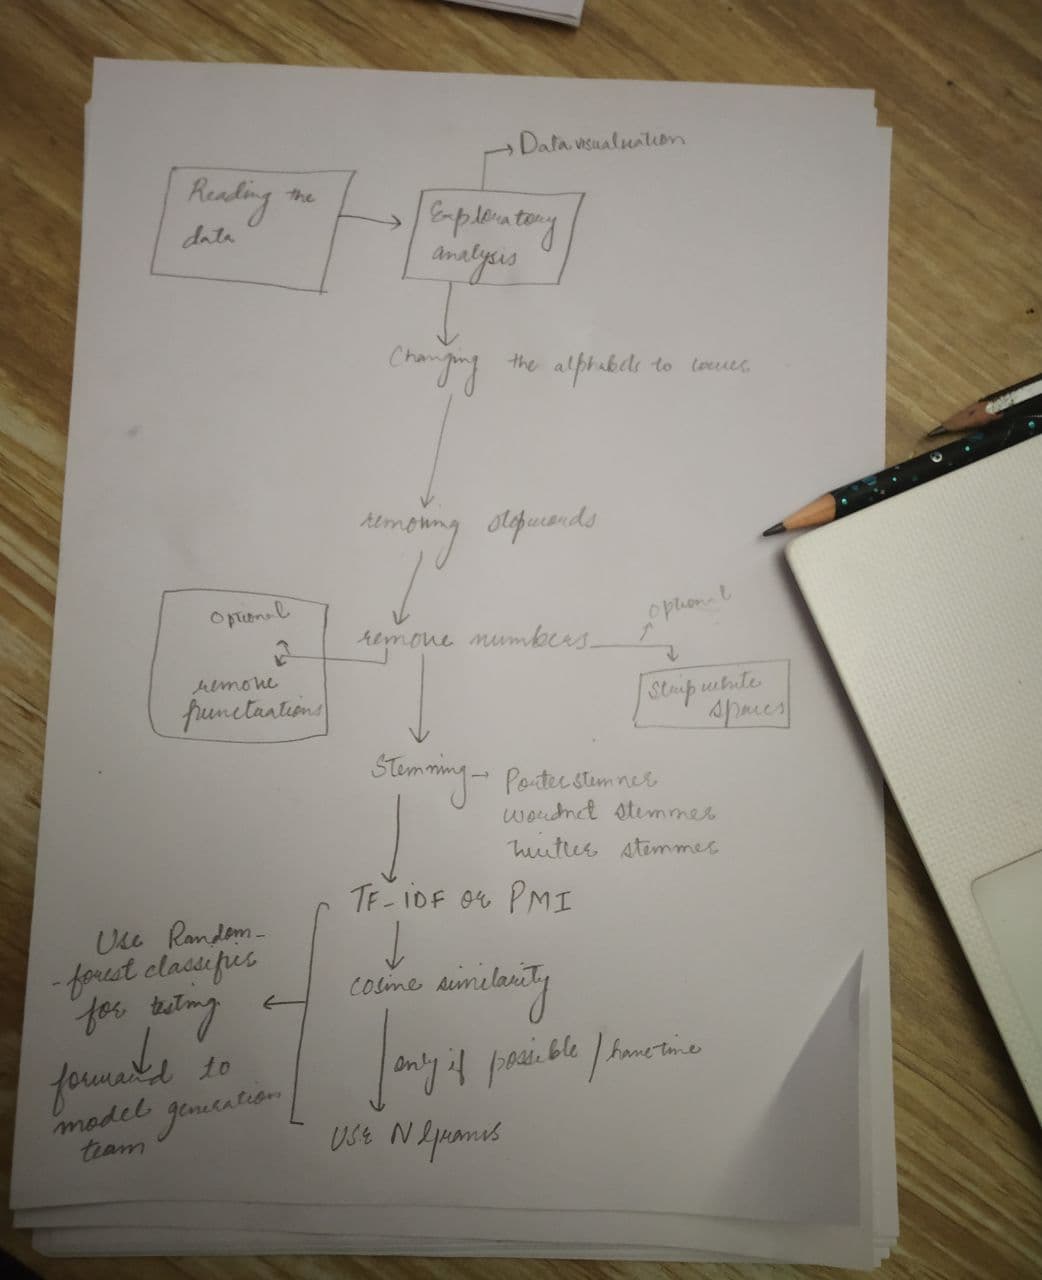 Data visualuation
Reading the
data
Exploratory
analysis
Changing the alphabets to lower
removing stopwords
Optional
remove
punctuations
remove numbers
optional
Strip white
spaces
Stemming → Porter stemner
wordnet stemmer
stemmer
TF-IDF or PMI
cosine similarity
only if possible / have time
USE N grams
Use Random-
-forest classifier
for testing
forward to
model generation
team